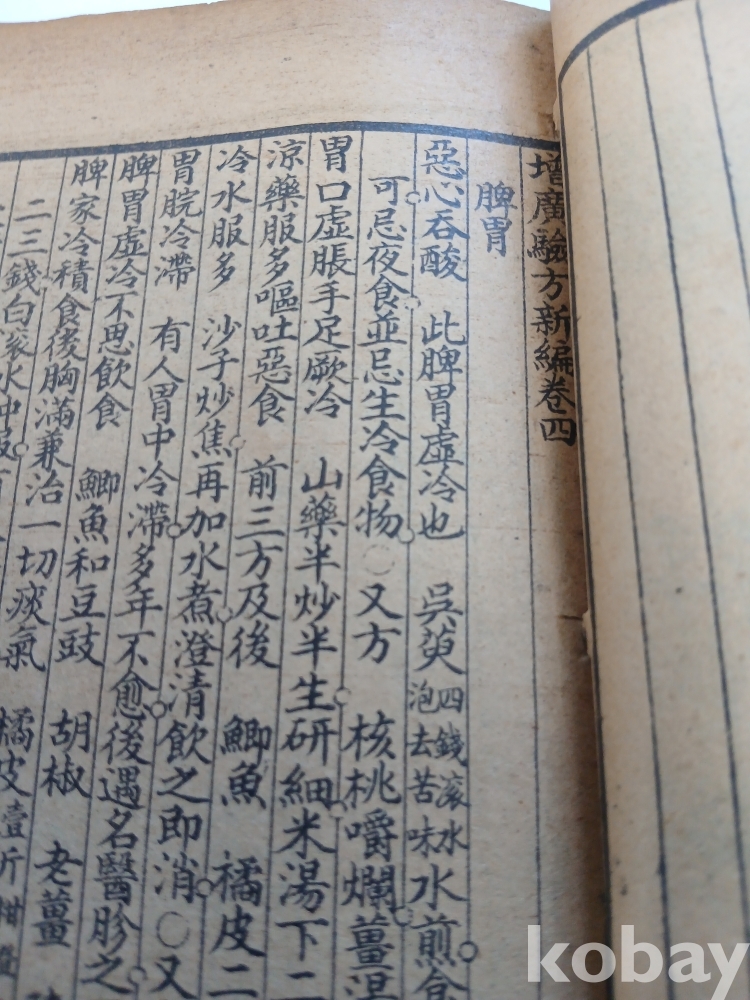 增廣驗方新編卷四
脾胃
惡心吞酸 此脾胃虛冷也 吳萸四錢滾水泡去苦味水煎
可忌夜食並忌生冷食物○又方 核桃嚼爛薑
胃口虛脹手足厥冷 山藥半炒半生研細米湯下二
涼藥服多嘔吐惡食 前三方及後 鯽魚 橘皮二
冷水服多 沙子炒焦再加水煮澄清飲之即消○又
胃脘冷滯 有人胃中冷滯多年不愈後遇名醫診之
脾胃虛冷不思飲食 鯽魚和豆豉 胡椒 老薑
脾家冷積食後胸滿兼治一切痰氣 橘皮壹斤
二三錢白滾水沖服
kobay